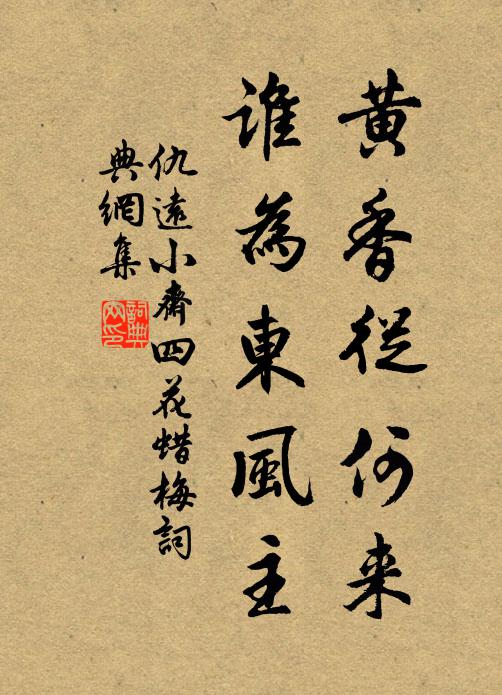 黄香從何来
誰為東風主
仇遠小齋四花蜡梅詞
典網集
詞典網印